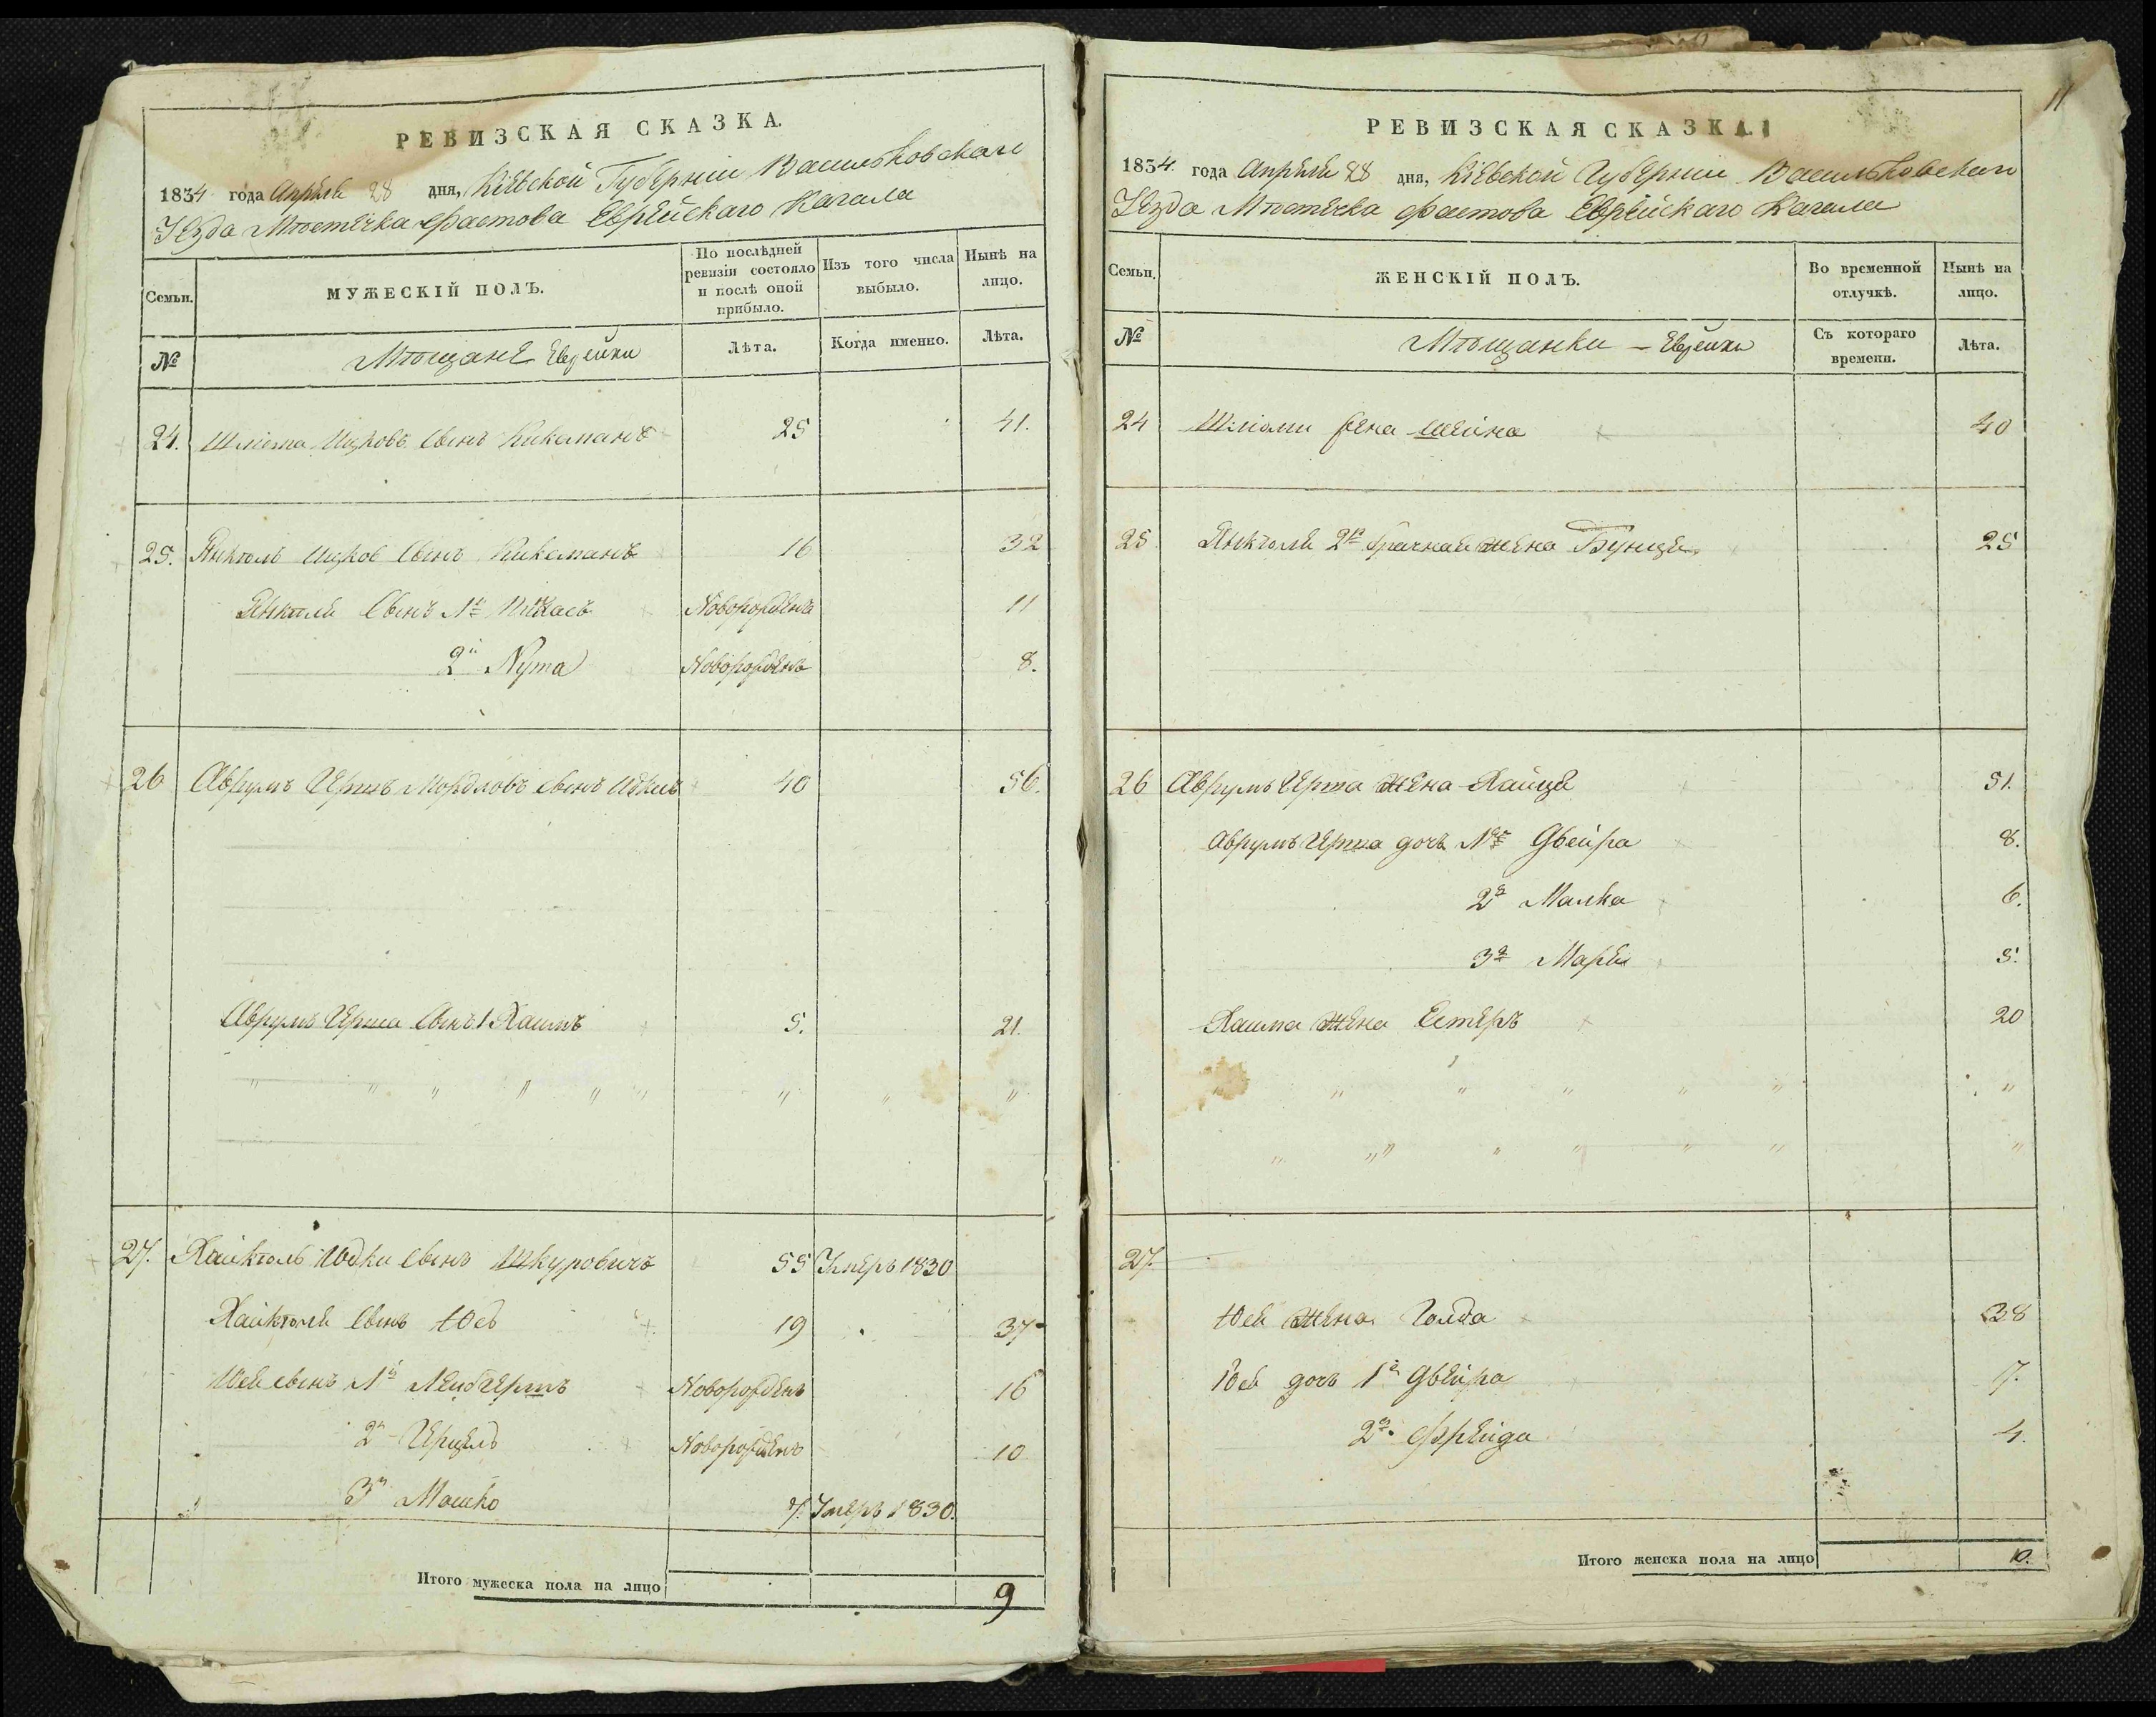 РЕВИЗСКАЯ СКАЗКА.
1834 года Апрѣля 28 дня, Кіевской Губерніи Васильковскаго
Уѣзда Мѣстечка Фастова Еврейскаго Кагала
Семьи.
МУЖЕСКІЙ ПОЛЪ.
По послѣдней ревизіи состояло и послѣ оной прибыло.
Изъ того числа выбыло.
Нынѣ на лицо.
№
Мѣщане Евреики
Лѣта.
Когда именно.
Лѣта.
24. Шліома Ицковъ Сынъ 25 41.
25. Янкель Ицков Сынъ 16 32
Янкеля Сынъ 1й Пинкасъ Новорожденъ 11
2й Нута Новорожденъ 8.
26 Аврумъ Гершъ Мордковъ сынъ 40 56.
Аврумъ Герша Сынъ 1 Хаимъ 5. 21.
" " " " " " " " "
27. Хайкель Юдки сынъ Шкуровичъ 55 Умеръ 1830
Хайкеля Сынъ Юсь 19 37
Юся сынъ 1й Лейбгершъ Новорожденъ 16
2й Герцель Новорожденъ 10
3й Мошко 7. Умеръ 1830.
Итого мужеска пола на лицо 9
11
РЕВИЗСКАЯ СКАЗКА.
1834 года Апрѣля 28 дня, Кіевской Губерніи Васильковскаго
Уѣзда Мѣстечка Фастова Еврейскаго Кагала
Семьи.
ЖЕНСКІЙ ПОЛЪ.
Во временной отлучкѣ.
Нынѣ на лицо.
№
Мѣщанки - Евреики
Съ котораго времени.
Лѣта.
24 Шліоми жена Шейна 40
25 Янкеля 2й брачная жена Бунця 25
26 Аврумъ Герша жена Хайця 51.
Аврумъ Герша дочь 1я Двейра 8.
2я Малка 6.
3я Маря 5.
Хаима жена Естеръ 20
" " " " " " "
" " " " " " "
27.
Юся жена Голда 38
Юся дочь 1я Двейра 7.
2я Фрейда 4.
Итого женска пола на лицо 10.